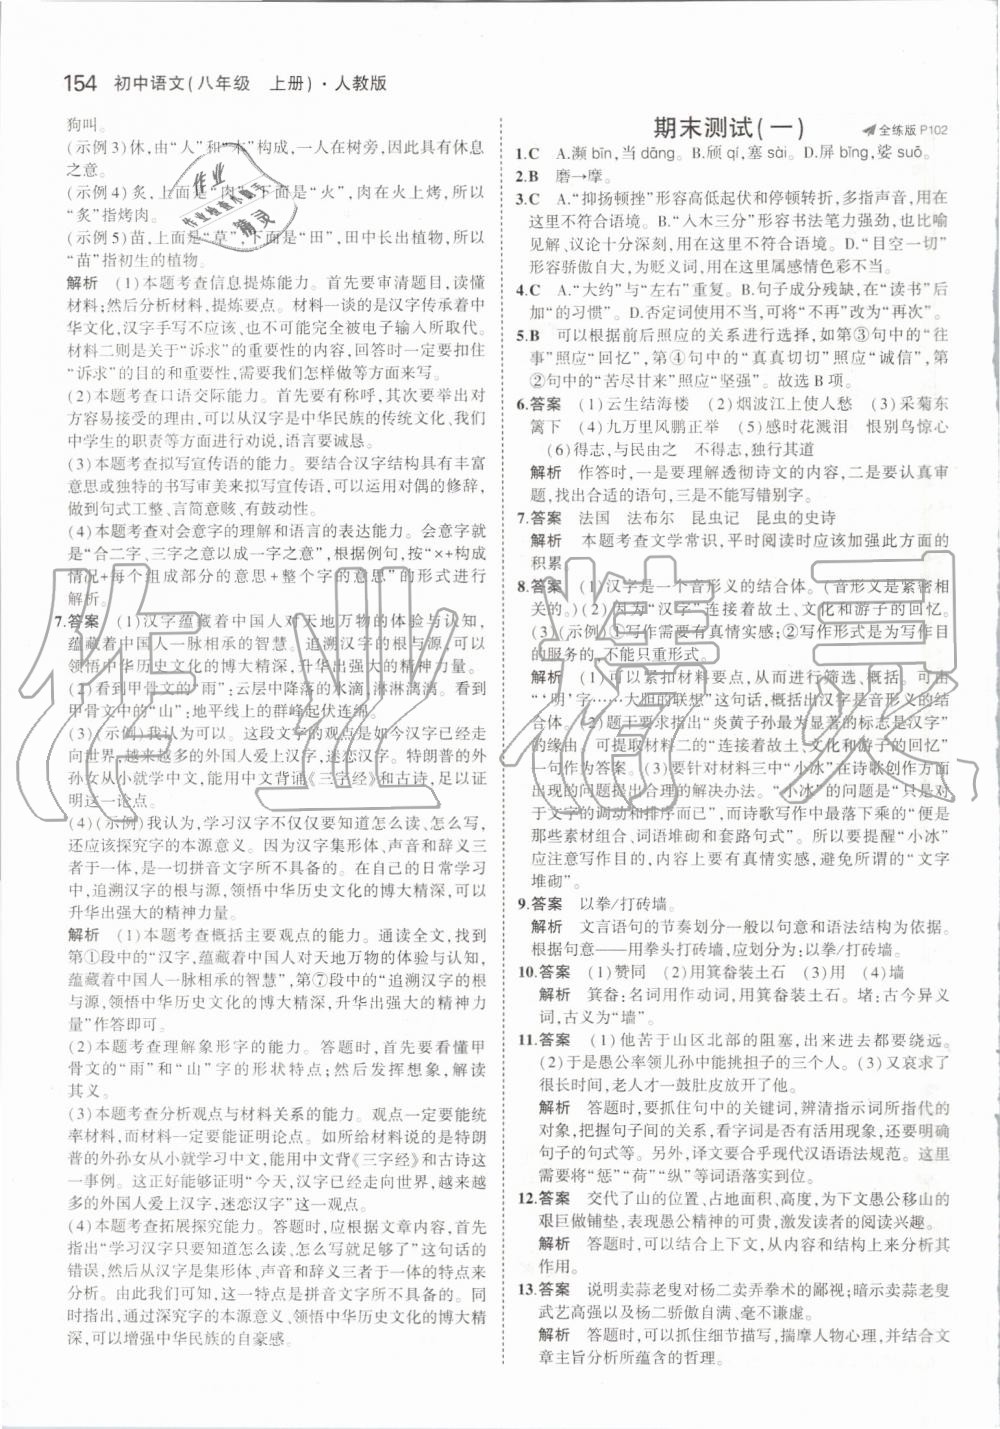 154 初中语文(八年级 上册)·人教版
狗叫。
(示例3)休,由“人”和“木”构成,一人在树旁,因此具有休息
之意。
(示例4)炙,上面是“肉”,下面是“火”,肉在火上烤,所以
“炙”指烤肉。
(示例5)苗,上面是“草”,下面是“田”,田中长出植物,所以
“苗”指初生的植物。
解析 (1)本题考查信息提炼能力。首先要审清题目,读懂
材料;然后分析材料,提炼要点。材料一谈的是汉字传承着中
华文化,汉字手写不应该、也不能完全被电子输入所取代。
材料二则是关于“诉求”的重要性的内容,回答时一定要扣住
“诉求”的目的和重要性,需要我们怎样做等方面来写。
(2)本题考查口语交际能力。首先要有称呼,其次要举出对
方容易接受的理由,可以从汉字是中华民族的传统文化,我们
中学生的职责等方面进行劝说,语言要诚恳。
(3)本题考查拟写宣传语的能力。要结合汉字结构具有丰富
意思或独特的书写审美来拟写宣传语,可以运用对偶的修辞,
做到句式工整、言简意赅、有鼓动性。
(4)本题考查对会意字的理解和语言的表达能力。会意字就
是“合二字、三字之意以成一字之意”,根据例句,按“×+构成
情况+每个组成部分的意思+整个字的意思”的形式进行
解析。
7.答案 (1)汉字蕴藏着中国人对天地万物的体验与认知,
蕴藏着中国人一脉相承的智慧。追溯汉字的根与源,可以
领悟中华历史文化的博大精深,升华出强大的精神力量。
(2)看到甲骨文的“雨”:云层中降落的水滴,淋淋漓漓。看到
甲骨文中的“山”:地平线上的群峰起伏连绵。
(3)(示例)我认为可以。这段文字的观点是如今汉字已经走
向世界,越来越多的外国人爱上汉字,迷恋汉字。特朗普的外
孙女从小就学中文,能用中文背诵《三字经》和古诗,足以证
明这一论点。
(4)(示例)我认为,学习汉字不仅仅要知道怎么读、怎么写,
还应该探究字的本源意义。因为汉字集形体、声音和辞义三
者于一体,是一切拼音文字所不具备的。在自己的日常学习
中,追溯汉字的根与源,领悟中华历史文化的博大精深,可以
升华出强大的精神力量。
解析 (1)本题考查概括主要观点的能力。通读全文,找到
第①段中的“汉字,蕴藏着中国人对天地万物的体验与认知,
蕴藏着中国人一脉相承的智慧”,第⑦段中的“追溯汉字的根
与源,领悟中华历史文化的博大精深,升华出强大的精神力
量”作答即可。
(2)本题考查理解象形字的能力。答题时,首先要看懂甲
骨文的“雨”和“山”字的形状特点;然后发挥想象,解读
其义。
(3)本题考查分析观点与材料关系的能力。观点一定要能统
率材料,而材料一定要能证明论点。如所给材料说的是特朗
普的外孙女从小就学习中文,能用中文背《三字经》和古诗这
一事例。这正好能证明“今天,汉字已经走向世界,越来越多
的外国人爱上汉字,迷恋汉字”这一观点。
(4)本题考查拓展探究能力。答题时,应根据文章内容,首先
指出“学习汉字只要知道怎么读、怎么写就可以了”这句话的
错误,然后从汉字是集形体、声音和辞义三者于一体的特点来
分析。由此我们可知,这一特点是拼音文字所不具备的。同
时指出,通过深究字的本源意义、领悟中华历史文化的博大精
深,可以增强中华民族的自豪感。
期末测试(一) 全练版 P102
1.C A.濒 bīn,当 dāng。B.颀 qí,塞 sài。D.屏 bǐng,娑 suō。
2.B 磨→摩。
3.C A.“抑扬顿挫”形容高低起伏和停顿转折,多指声音,用在
这里不符合语境。B.“入木三分”形容书法笔力强劲,也比喻
见解、议论十分深刻,用在这里不符合语境。D.“目空一切”
形容骄傲自大,为贬义词,用在这里属感情色彩不当。
4.C A.“大约”与“左右”重复。B.句子成分残缺,在“读书”后
加“的习惯”。D.否定词使用不当,可将“不再”改为“再次”。
5.B 可以根据前后照应的关系进行选择,如第③句中的“往
事”照应“回忆”,第④句中的“真真切切”照应“诚信”,第
②句中的“苦尽甘来”照应“坚强”。故选 B 项。
6.答案 (1)云生结海楼 (2)烟波江上使人愁 (3)采菊东
篱下 (4)九万里风鹏正举 (5)感时花溅泪 恨别鸟惊心
(6)得志,与民由之 不得志,独行其道
解析 作答时,一是要理解透彻诗文的内容,二是要认真审
题,找出合适的语句,三是不能写错别字。
7.答案 法国 法布尔 昆虫记 昆虫的史诗
解析 本题考查文学常识,平时阅读时应该加强此方面的
积累。
8.答案 (1)汉字是一个音形义的结合体。(音形义是紧密相
关的。)(2)因为“汉字”连接着故土、文化和游子的回忆。
(3)(示例)①写作需要有真情实感;②写作形式是为写作目
的服务的,不能只重形式。
解析 (1)可以紧扣材料要点,进行筛选、概括。可由
“‘明’字……大胆的联想”这句话,概括出汉字是音形义的结
合体。(2)题干要求指出“炎黄子孙最显著的标志是汉字”
的缘由,可提取材料二的“连接着故土、文化和游子的回忆”
一句作为答案。(3)要针对材料三中“小冰”在诗歌创作方面
出现的问题提出合理的解决办法。“小冰”的问题是“只是对
于文字的调动和排列”,而诗歌写作中最落下乘的“便是
那些素材组合、词语堆砌和套路句式”。所以要提醒“小冰”
应注意写作的内容上要有真情实感,避免所谓的“文字
堆砌”。
9.答案 以拳/打砖墙。
解析 文言语句的节奏划分一般以句意和语法结构为依据。
根据句意——用拳头打砖墙,应划分为:以拳/打砖墙。
10.答案 (1)赞同 (2)用箕畚装土石 (3)用 (4)墙
解析 箕畚:名词用作动词,用箕畚装土石。堵:古今异义
词,古义为“墙”。
11.答案 (1)他苦于山区北部的阻塞,出来进去都要绕远。
(2)于是愚公率领儿孙中能挑担子的三个人。(3)又哀求了
很长时间,老人才一鼓肚皮放开了他。
解析 答题时,要抓住句中的关键词,辨清指示词所指代的
对象,把握句子间的关系,看字词是否有活用现象,还要明确
句子的句式等。另外,译文要合乎现代汉语语法规范。这里
需要将“惩”“荷”“纵”等词语落实到位。
12.答案 交代了山的位置、占地面积、高度,为下文愚公移山的
艰巨做铺垫,表现愚公精神的可贵,激发读者的阅读兴趣。
解析 答题时,可以结合上下文,从内容和结构上来分析其
作用。
13.答案 说明卖蒜老叟对杨二卖弄拳术的鄙视;暗示卖蒜老叟
武艺高强以及杨二骄傲自满、毫不谦虚。
解析 答题时,可以抓住细节描写,揣摩人物心理,并结合文
章主旨分析所蕴含的哲理。